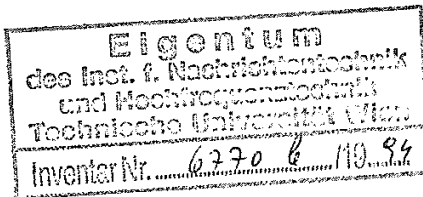 Eigentum
des Inst. f. Nachrichtentechnik
und Hochfrequenztechnik
Technische Universität Wien
Inventar Nr. 6770 b /19 94